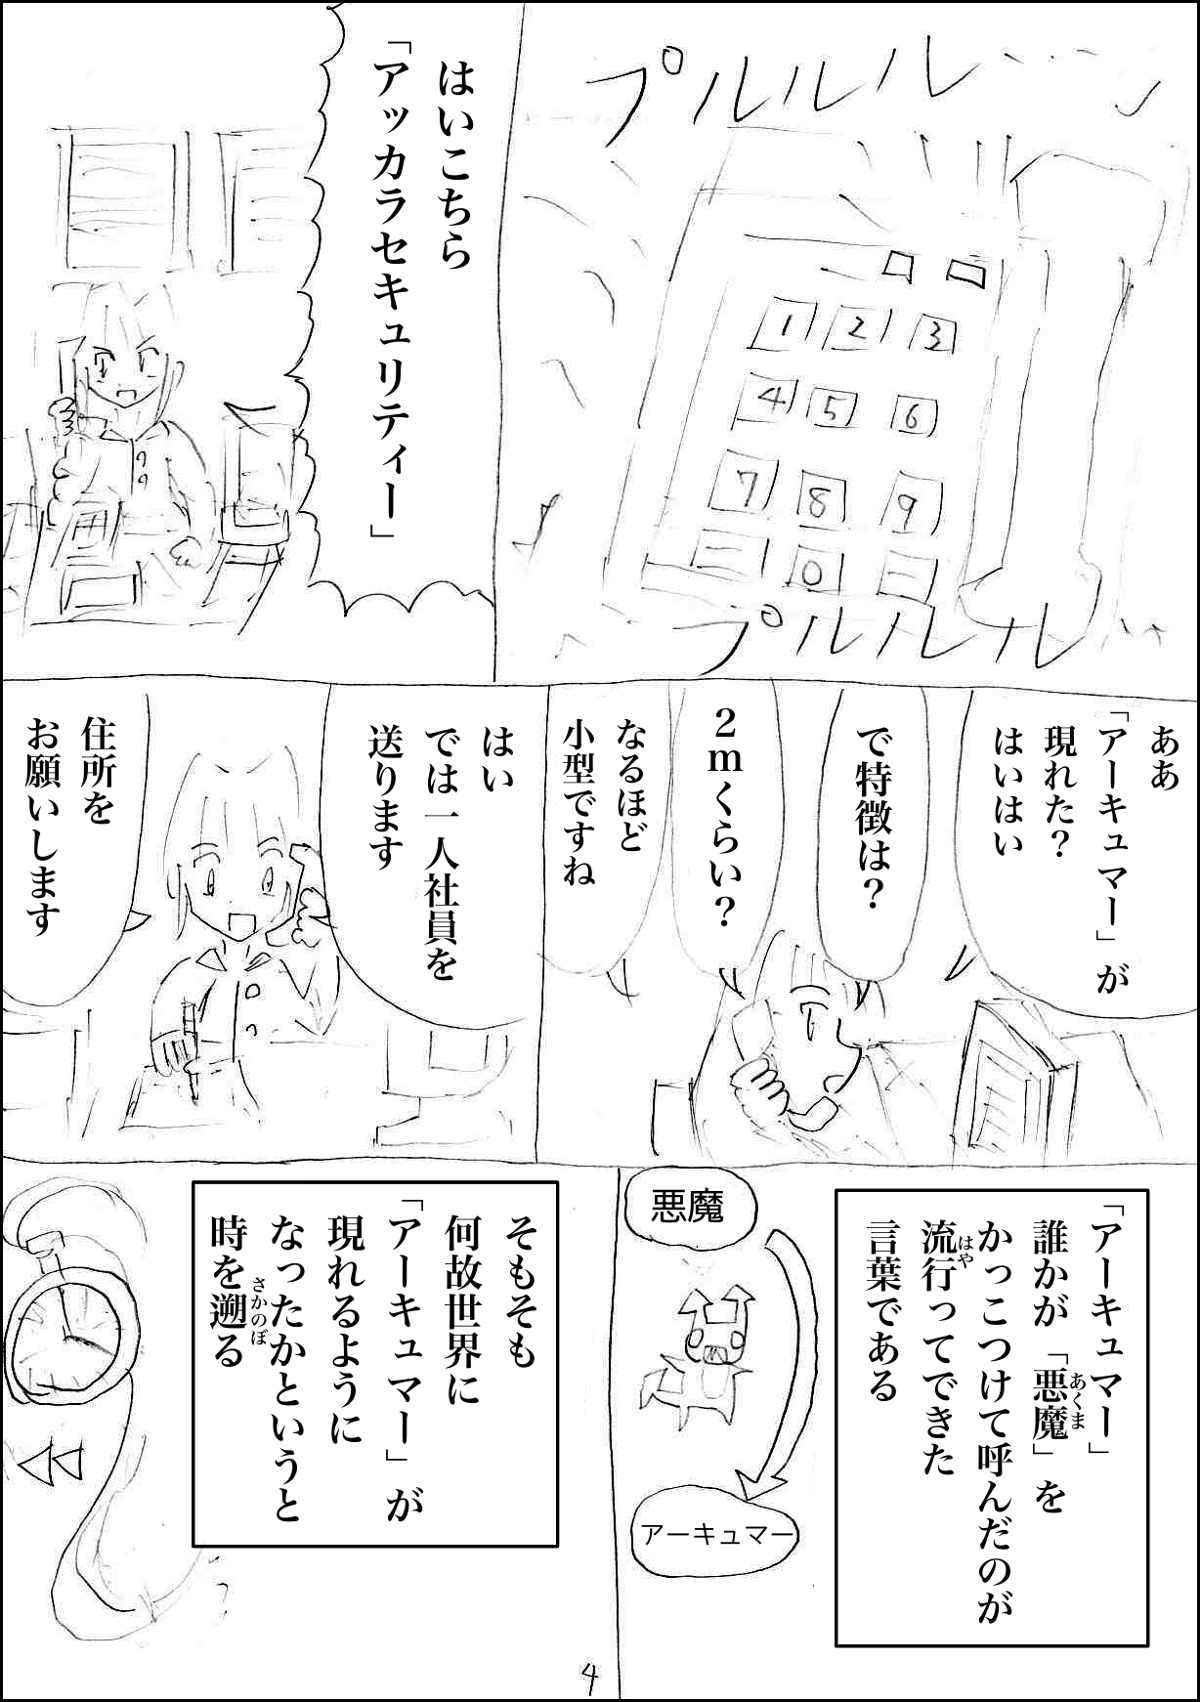 プルルル
1 2 3
4 5 6
7 8 9
0
プルルル
はいこちら
「アッカラセキュリティー」
ああ
「アーキュマー」が
現れた？
はいはい
で特徴は？
２ｍくらい？
なるほど
小型ですね
はい
では一人社員を
送ります
住所を
お願いします
「アーキュマー」
誰かが「悪魔」を
あくま
かっこつけて呼んだのが
流行ってできた
はや
言葉である
悪魔
アーキュマー
そもそも
何故世界に
「アーキュマー」が
現れるように
なったかというと
時を遡る
さかのぼ
4